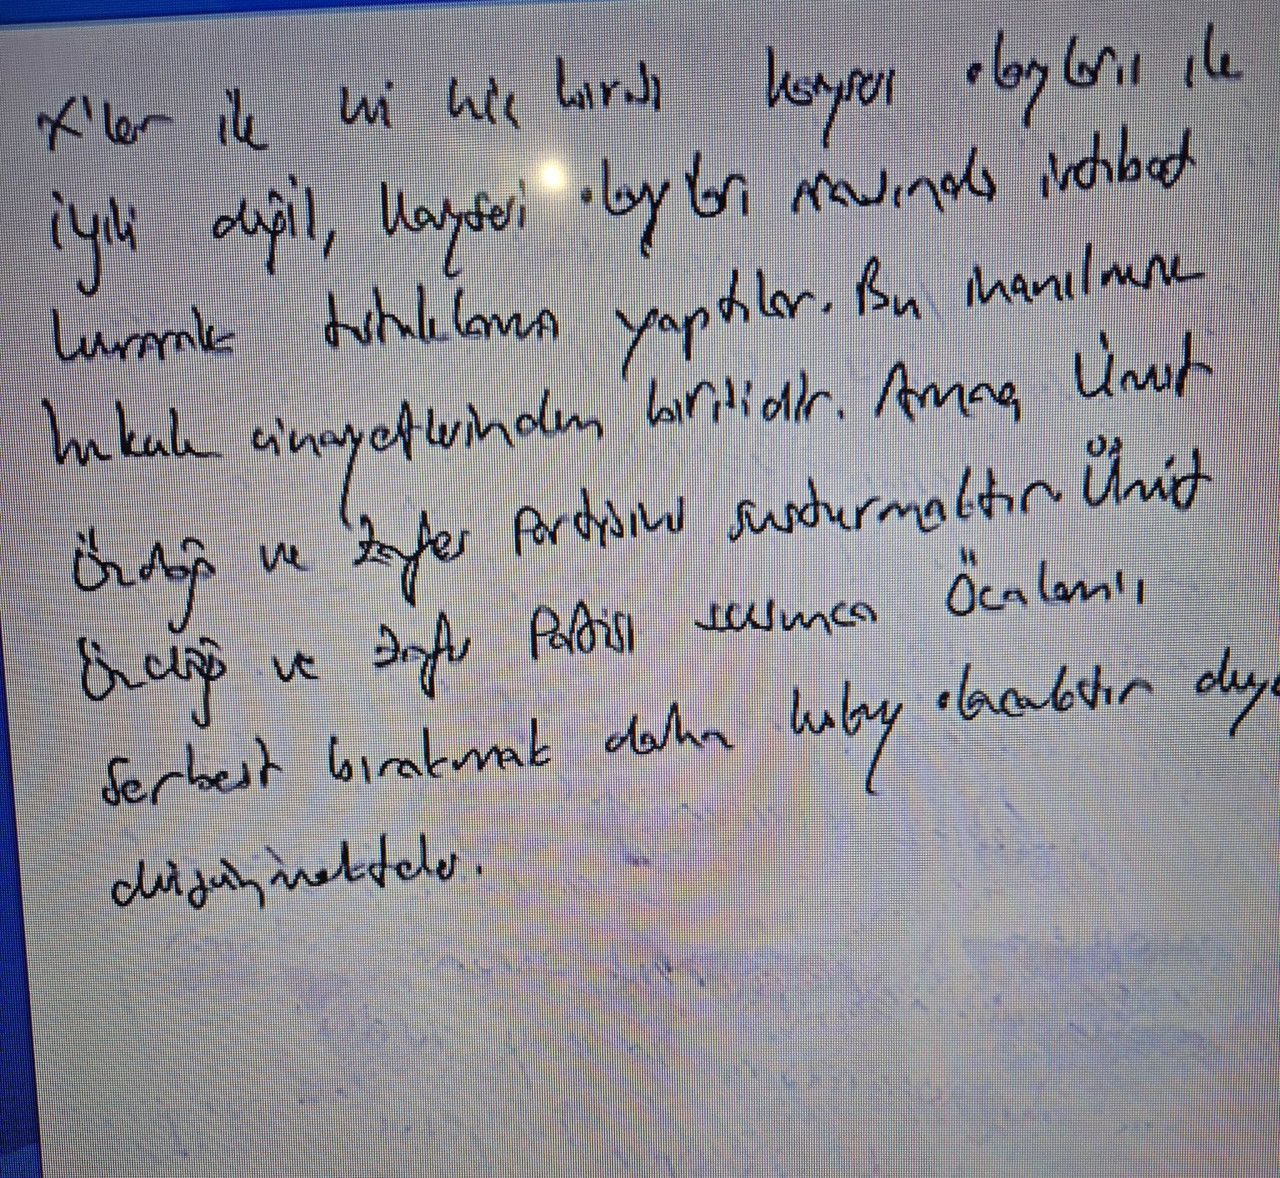 X'ler ile ki hiç birisi Kayseri olayları ile
ilgili değil, Kayseri olayları arasında irtibat
kurarak tutuklama yaptılar. Bu inanılmaz
hukuk cinayetlerinden birisidir. Amaç Ümit
Özdağ ve Zafer Partisini susturmaktır Ümit
Özdağ ve Zafer Partisi susunca Öcalan'ı
serbest bırakmak daha kolay olacaktır diye
düşünmekteler.